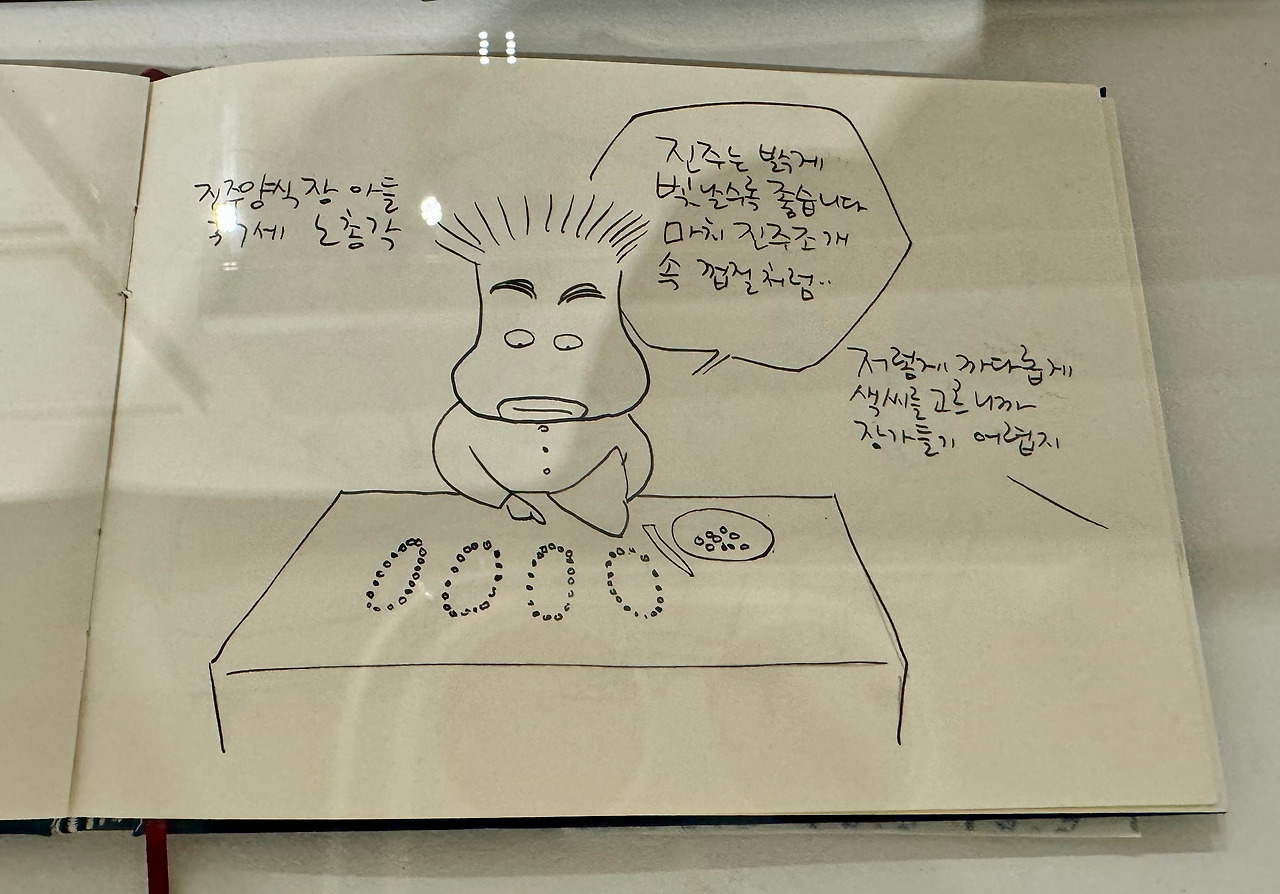 진주양식장 아들
세 노총각
진주는 밝게
빛날수록 좋습니다
마치 진주조개
속 껍질처럼..
저렇게 까다롭게
색씨를 고르니까
장가들기 어렵지